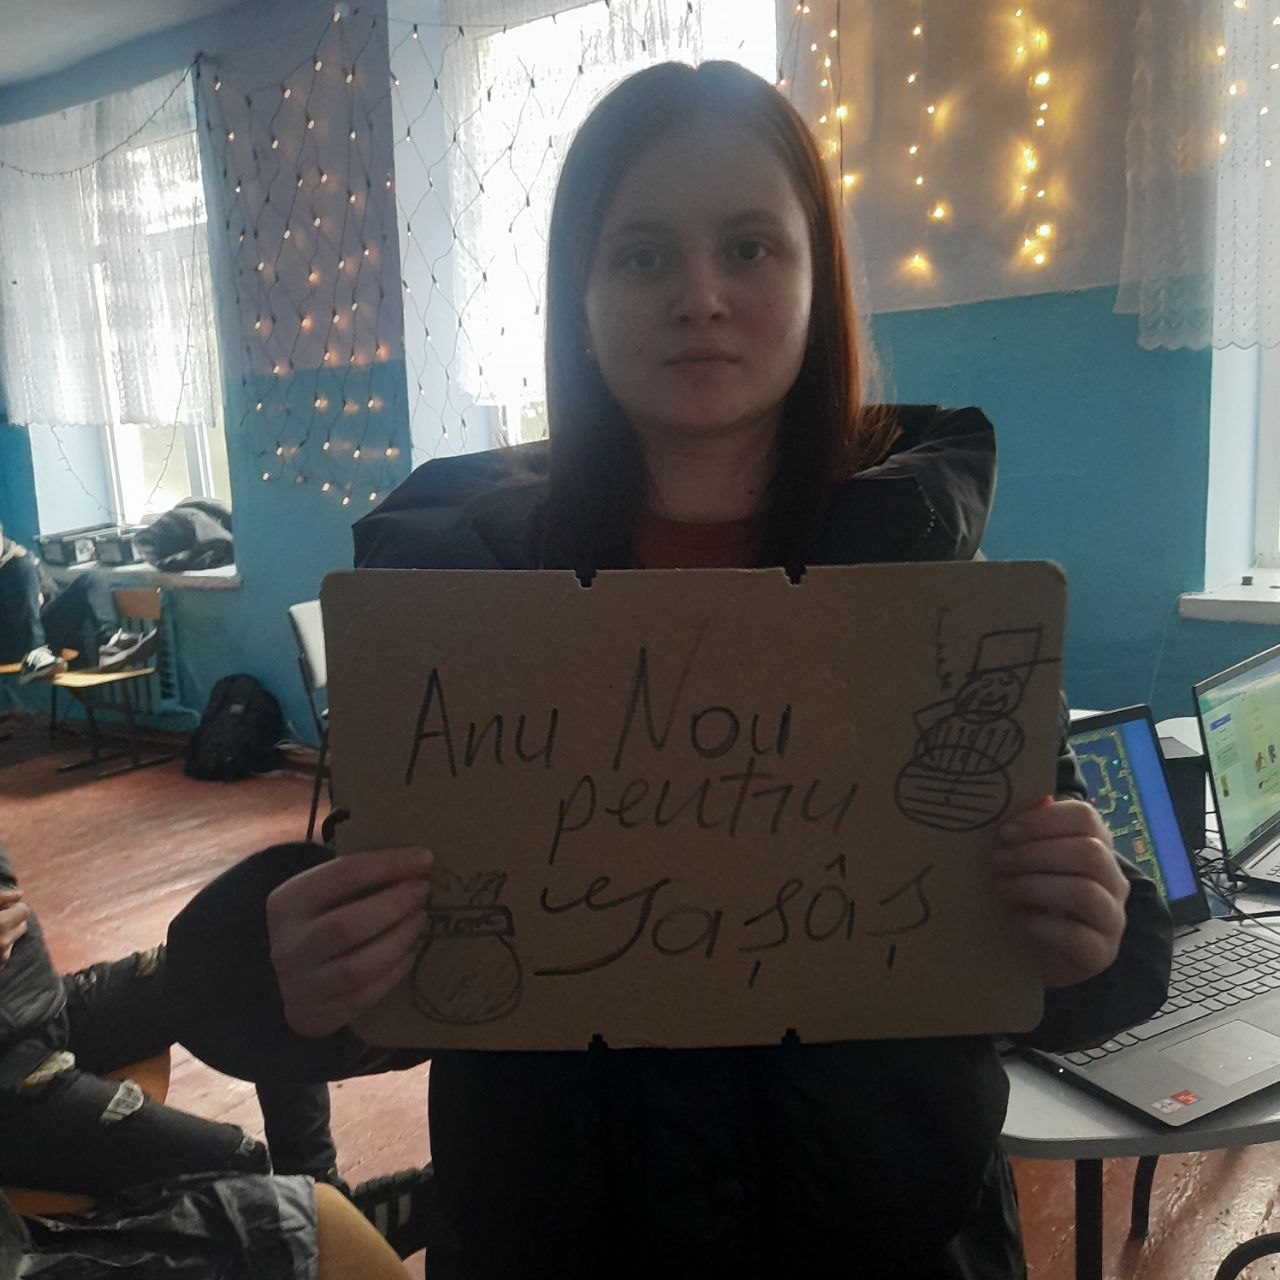 Anu Nou
pentru
Yașâș